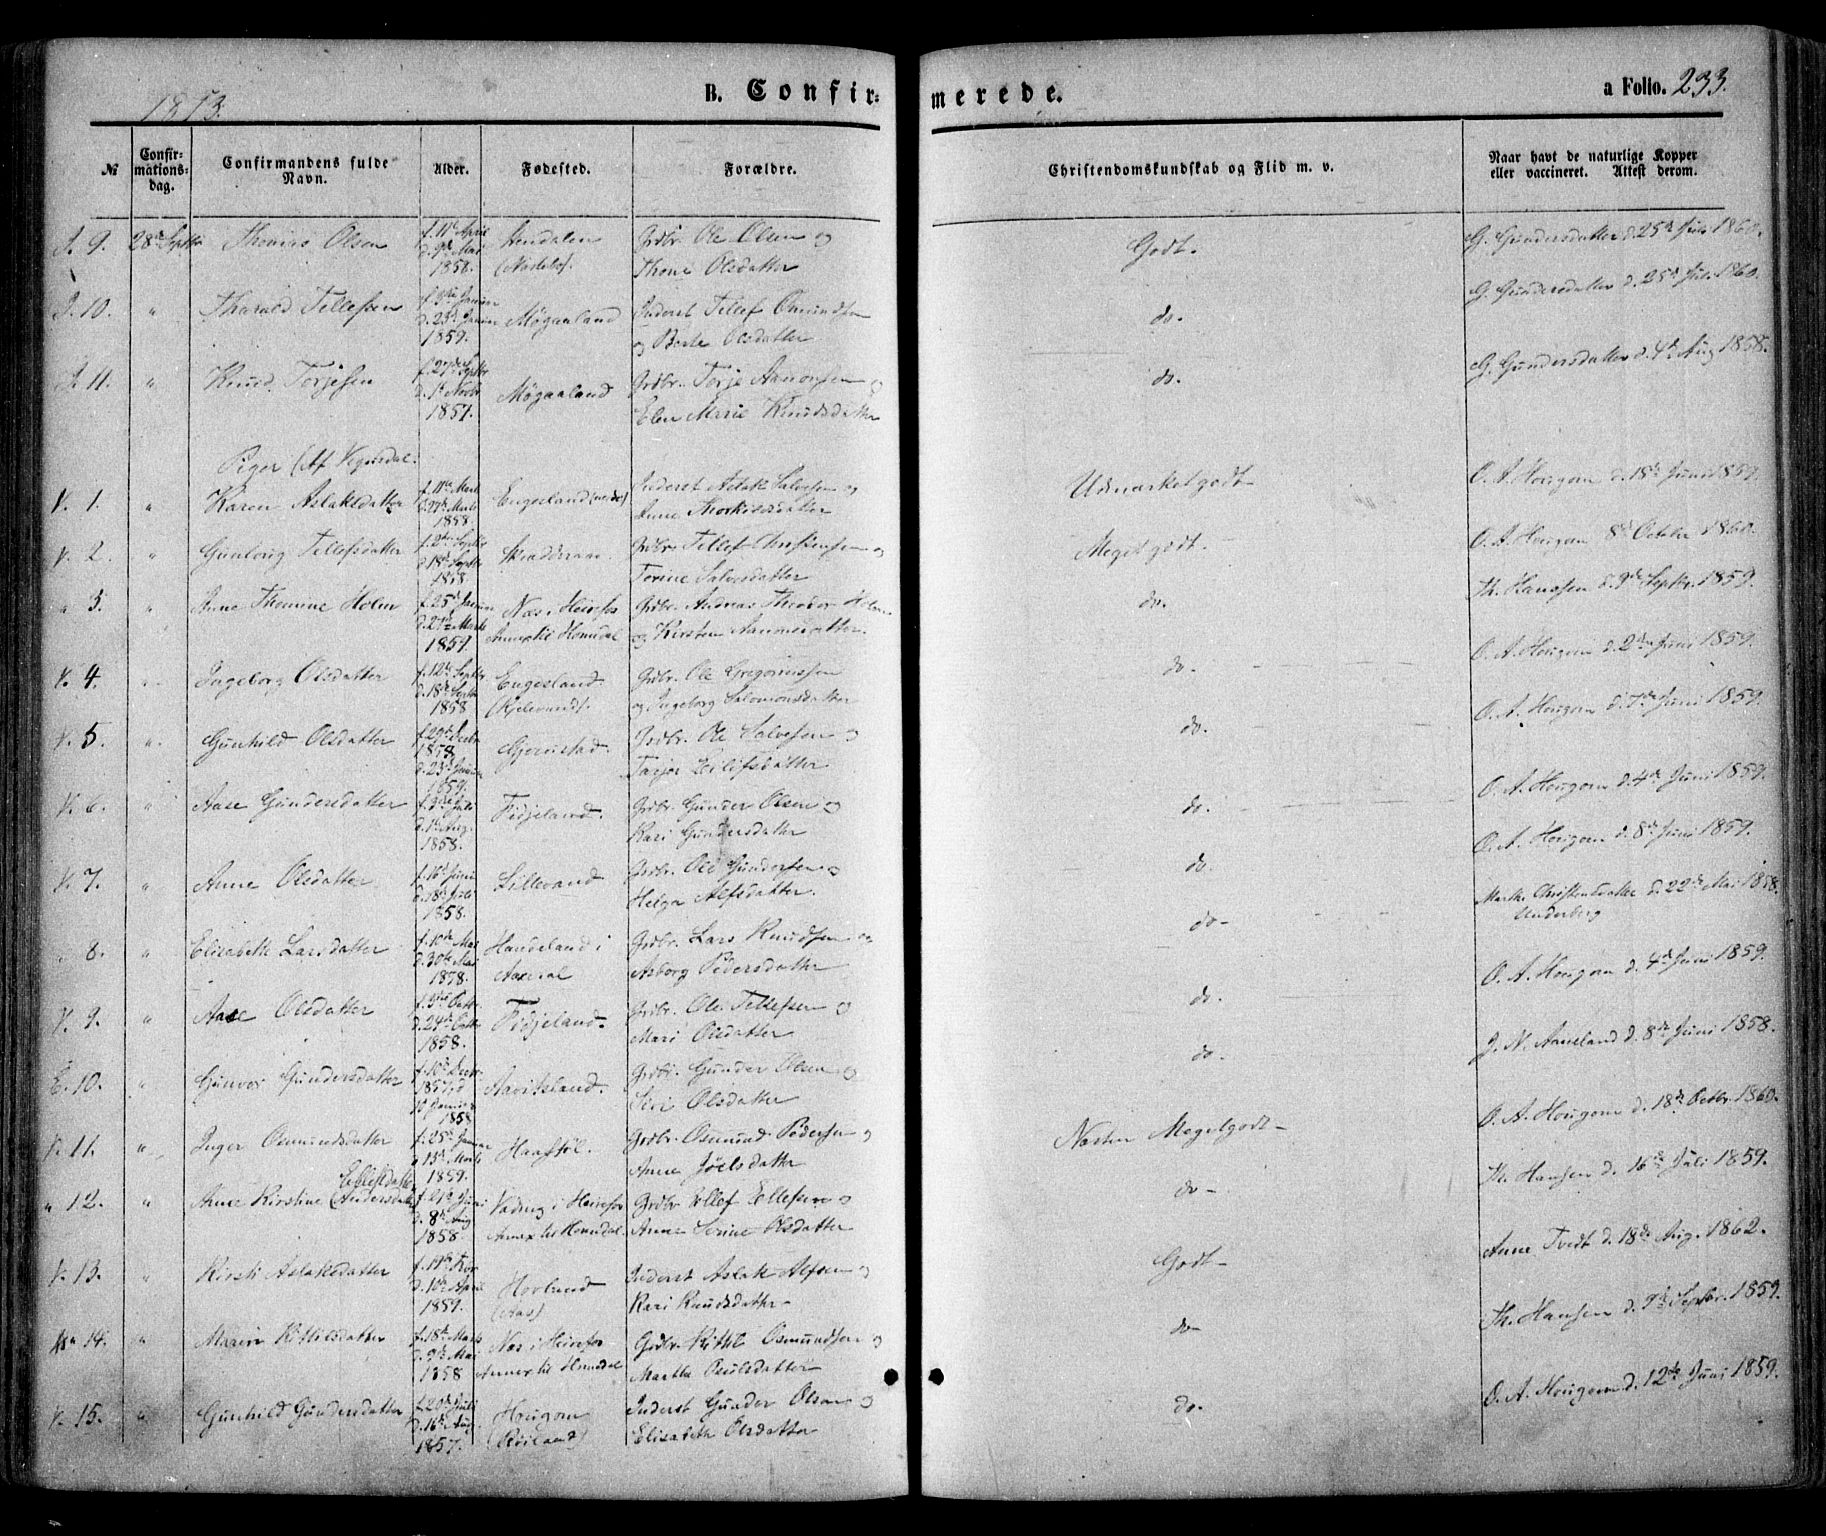 1873.
B. Confir-
merede.
a Folio. 233.
№
Confir-
mations-
dag.
Confirmandens fulde
Navn.
Alder.
Fødested.
Forældre.
Christendomskundskab og Flid m. v.
Naar havt de naturlige Kopper
eller vaccineret. Attest derom.
9. 28de Septbr Thomas Olsen f. 11te April d. 9de Mai 1858. Grdbr. Ole Olsen og Thone Olsdatter Godt. G. Gundersdatter d. 25de Juli 1860.
10. " Tharald Tellefsen f. 3die Januar d. 23de Januar 1859. Møgaaland Inderst Tellef Osmundsen og Berte Olsdatter do. G. Gundersdatter d. 25de Juli 1860.
11. " Knud Torjesen f. 27de Septbr d. 1te Novbr 1857. Møgaaland Grdbr. Torje Aanonsen og Elen Marie Knudsdatter do. G. Gundersdatter d. 4de Aug 1858.
Piger (Af Vegusdal.
V. 1. " Karen Aslaksdatter f. 11te Marts 1858 Engesland Inderst Aslak Salvesen og Anne Thorkildsdatter Udmærketgodt O. A. Hougom d. 18de Juni 1859.
V. 2. " Gunborg Tellefsdatter f. 2den Septbr d. 18de Septbr 1858 Grdbr. Tellef Christensen og Torine Salvesdatter Megetgodt. O. A. Hougom 8de October 1860.
" 3. " Anne Thomine Holm f. 25de Januar d. 27de Marts 1859. Næs i Heirefos Annex til Homdal Grdbr. Andreas Theodor Holm og Kirsten Aanonsdatter. do. Th. Hanssen d. 9de Septbr. 1859.
V. 4. Ingeborg Olsdatter f. 12te Septbr d. 18de Septbr 1858 Engesland (Kjelevand). Grdbr. Ole Gregoriussen og Ingeborg Salomonsdatter do. O. A. Hougom d. 2den Juni 1859.
V. 5. " Gunhild Olsdatter f. 29de Decbr 1858 d. 23de Januar 1859. Gjerustad Grdbr. Ole Salvesen og Tarjer Eilifsdatter do. O. A. Hougom d. 7de Juni 1859.
V. 6. " Aase Gundersdatter f. 3die Juli d. 1te Aug. 1858. Fidjeland. Grdbr. Gunder Olsen og Kari Gundersdatter do. O. A. Hougom d. 4de Juni 1859.
V. 7. " Anne Olsdatter f. 16de Juni d. 18de Juli 1858. Lillevand Grdbr. Ole Gundersen og Helga Alfsdatter. do. O. A. Hougom d. 8de Juni 1859.
" 8. " Elisabeth Larsdatter f. 10de Mai d. 30te Mai 1858. Haudeland i Aaseral Grdbr. Lars Knudsen og Asborg Pedersdatter do- Marthe Christensdatter d. 22de Mai 1858. Underberg
V. 9. " Aase Olsdatter f. 3die Octbr d. 24de Octbr 1858. Fidjeland. Grdbr. Ole Tellefsen og Mari Olsdatter do. O. A. Hougom d. 4de Juni 1859.
E. 10. " Gunvor Gundersdatter f. 10de Decbr 1857, d. 10 Januar 1858 Aavitsland. Grdbr. Gunder Olsen og Siri Olsdatter do. J. N. Aaneland d. 8de Juni 1858.
V. 11. " Inger Osmundsdatter f. 25de Januar d. 13de Marts 1859. Haafsøl. Grdbr. Osmund Pedersen og Anne Joelsdatter Næsten Megetgodt- O. A. Hougom d. 18de Octbr. 1860.
" 12. " Anne Kirstine (Andersdatter f. 21de Juni d. 8de Aug 1858. i Heirefos Annex til Homdal Grdbr Ellef Ellefsen og Anne Serine Olsdatter do- Th. Hansen d. 16de Juli 1859.
V. 13. " Kirsti Aslaksdatter d. 10de April 1859. Hovlund (Aas) Inderst Aslak Alfsen og Kari Knudsdatter- Godt- Anne Tvedt d. 18de Aug. 1862.
14. " Maren Kittilsdatter f. 18de Marts d. 9de Mai 1858 Næs i Heirefos Annex til Homdal Grdbr Kittil Osmundsen og Marthe Osulsdatter do- Th. Hansen d. 9de Septbr. 1859.
V. 15. " Gunhild Gundersdatter f. 20de Juli d. 16de Aug. 1857. Hougom (Røiland) Inderst Gunder Olsen og Elisabeth Olsdatter do. O. A. Hougom d. 12te Juni 1859.